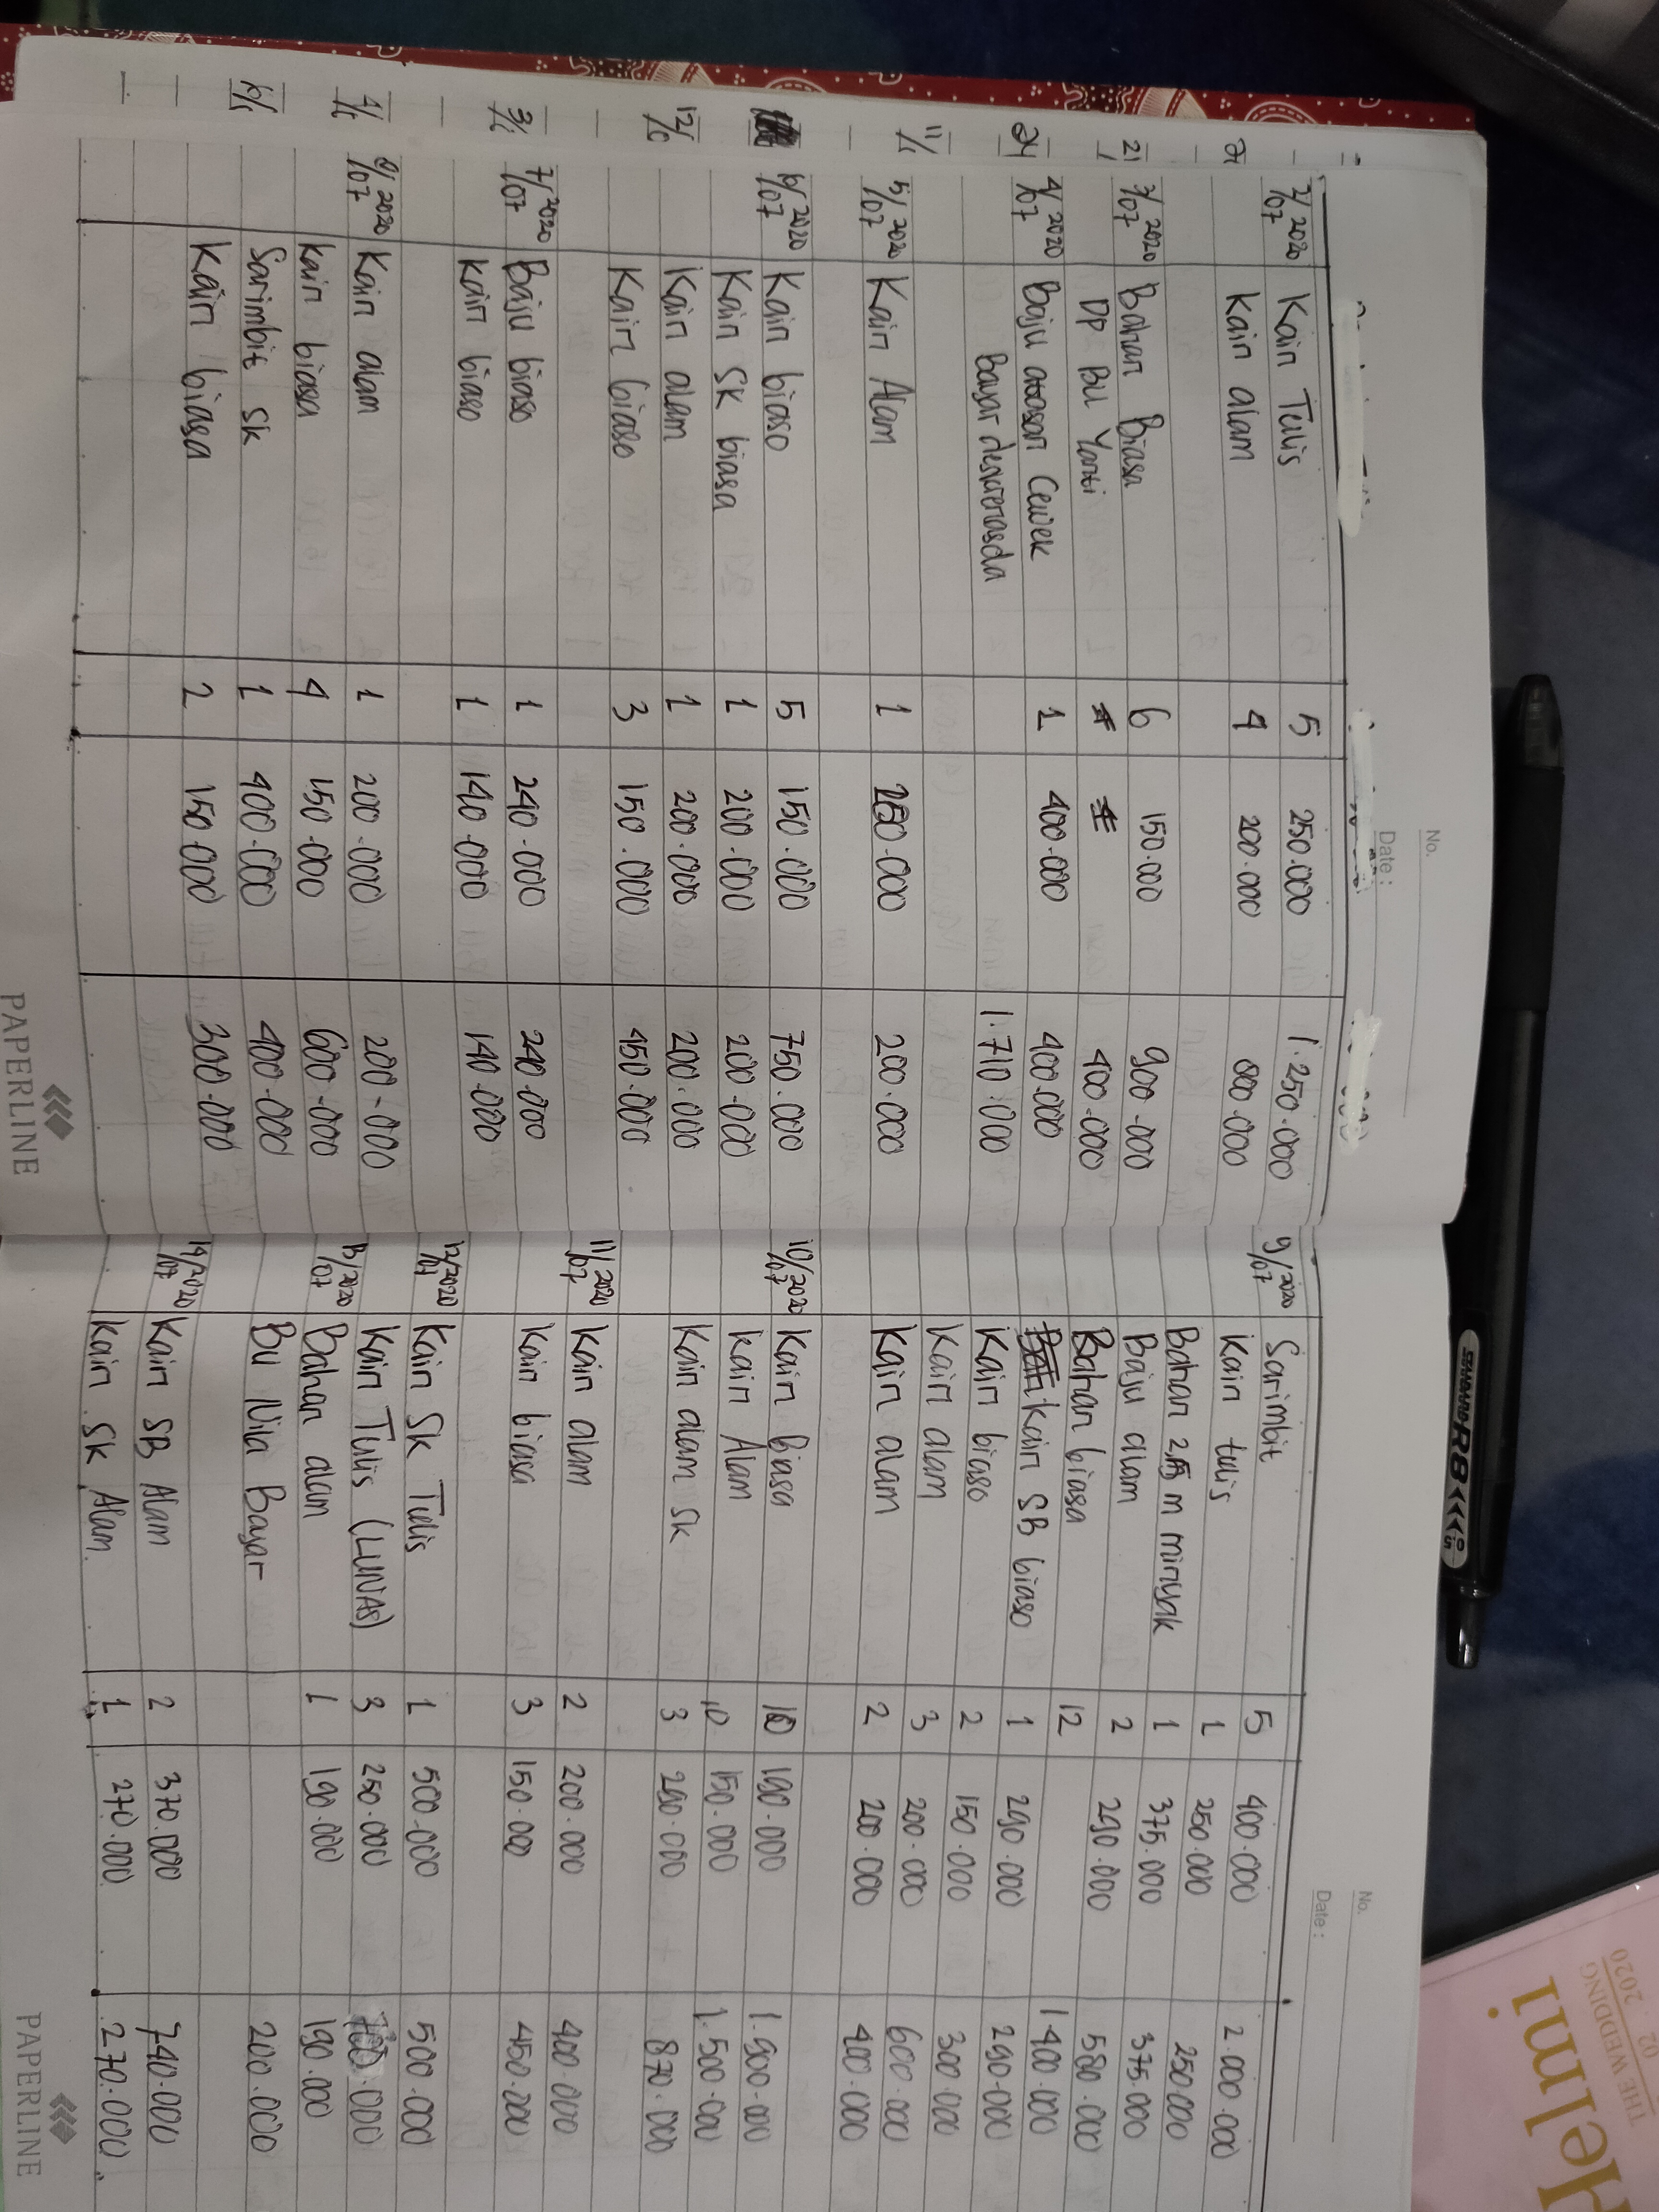 Helmi
THE WEDDING
02 . 2020
STANDARD R8 0.5
No.
Date :
2/07 2020 Kain Tulis 5 250.000 1.250.000
Kain alam 4 200.000 800.000
3/07 2020 Bahan Biasa 6 150.000 900.000
DP BU Yanti 400.000
4/07 2020 Baju atasan Cewek 1 400.000 400.000
Bayar deskrenasda 1.710.000
5/07 2020 Kain Alam 1 200.000 200.000
6/07 2020 Kain biaso 5 150.000 750.000
Kain SK biasa 1 200.000 200.000
Kain alam 1 200.000 200.000
Kain biaso 3 150.000 450.000
7/07 2020 Baju biaso 1 240.000 240.000
Kain biaso 1 140.000 140.000
8/07 2020 Kain alam 1 200.000 200.000
Kain biasa 4 150.000 600.000
Sarimbit SK 1 400.000 400.000
Kain biasa 2 150.000 300.000
PAPERLINE
No.
Date :
9/07 2020 Sarimbit 5 400.000 2.000.000
Kain tulis 1 250.000 250.000
Bahan 2,5 m minyak 1 375.000 375.000
Baju alam 2 290.000 580.000
Bahan biasa 12 1.400.000
Kain SB biaso 1 290.000 290.000
Kain biaso 2 150.000 300.000
Kain alam 3 200.000 600.000
Kain alam 2 200.000 400.000
10/07 2020 Kain Biasa 10 190.000 1.900.000
Kain Alam 10 150.000 1.500.000
Kain alam SK 3 290.000 870.000
11/07 2020 Kain alam 2 200.000 400.000
Kain biasa 3 150.000 450.000
12/07 2020 Kain SK Tulis 1 500.000 500.000
Kain Tulis (LUNAS) 3 250.000 700.000
13/07 2020 Bahan alam 1 190.000 190.000
Bu Nila Bayar 200.000
14/07 2020 Kain SB Alam 2 370.000 740.000
Kain SK Alam 1 270.000 270.000
PAPERLINE